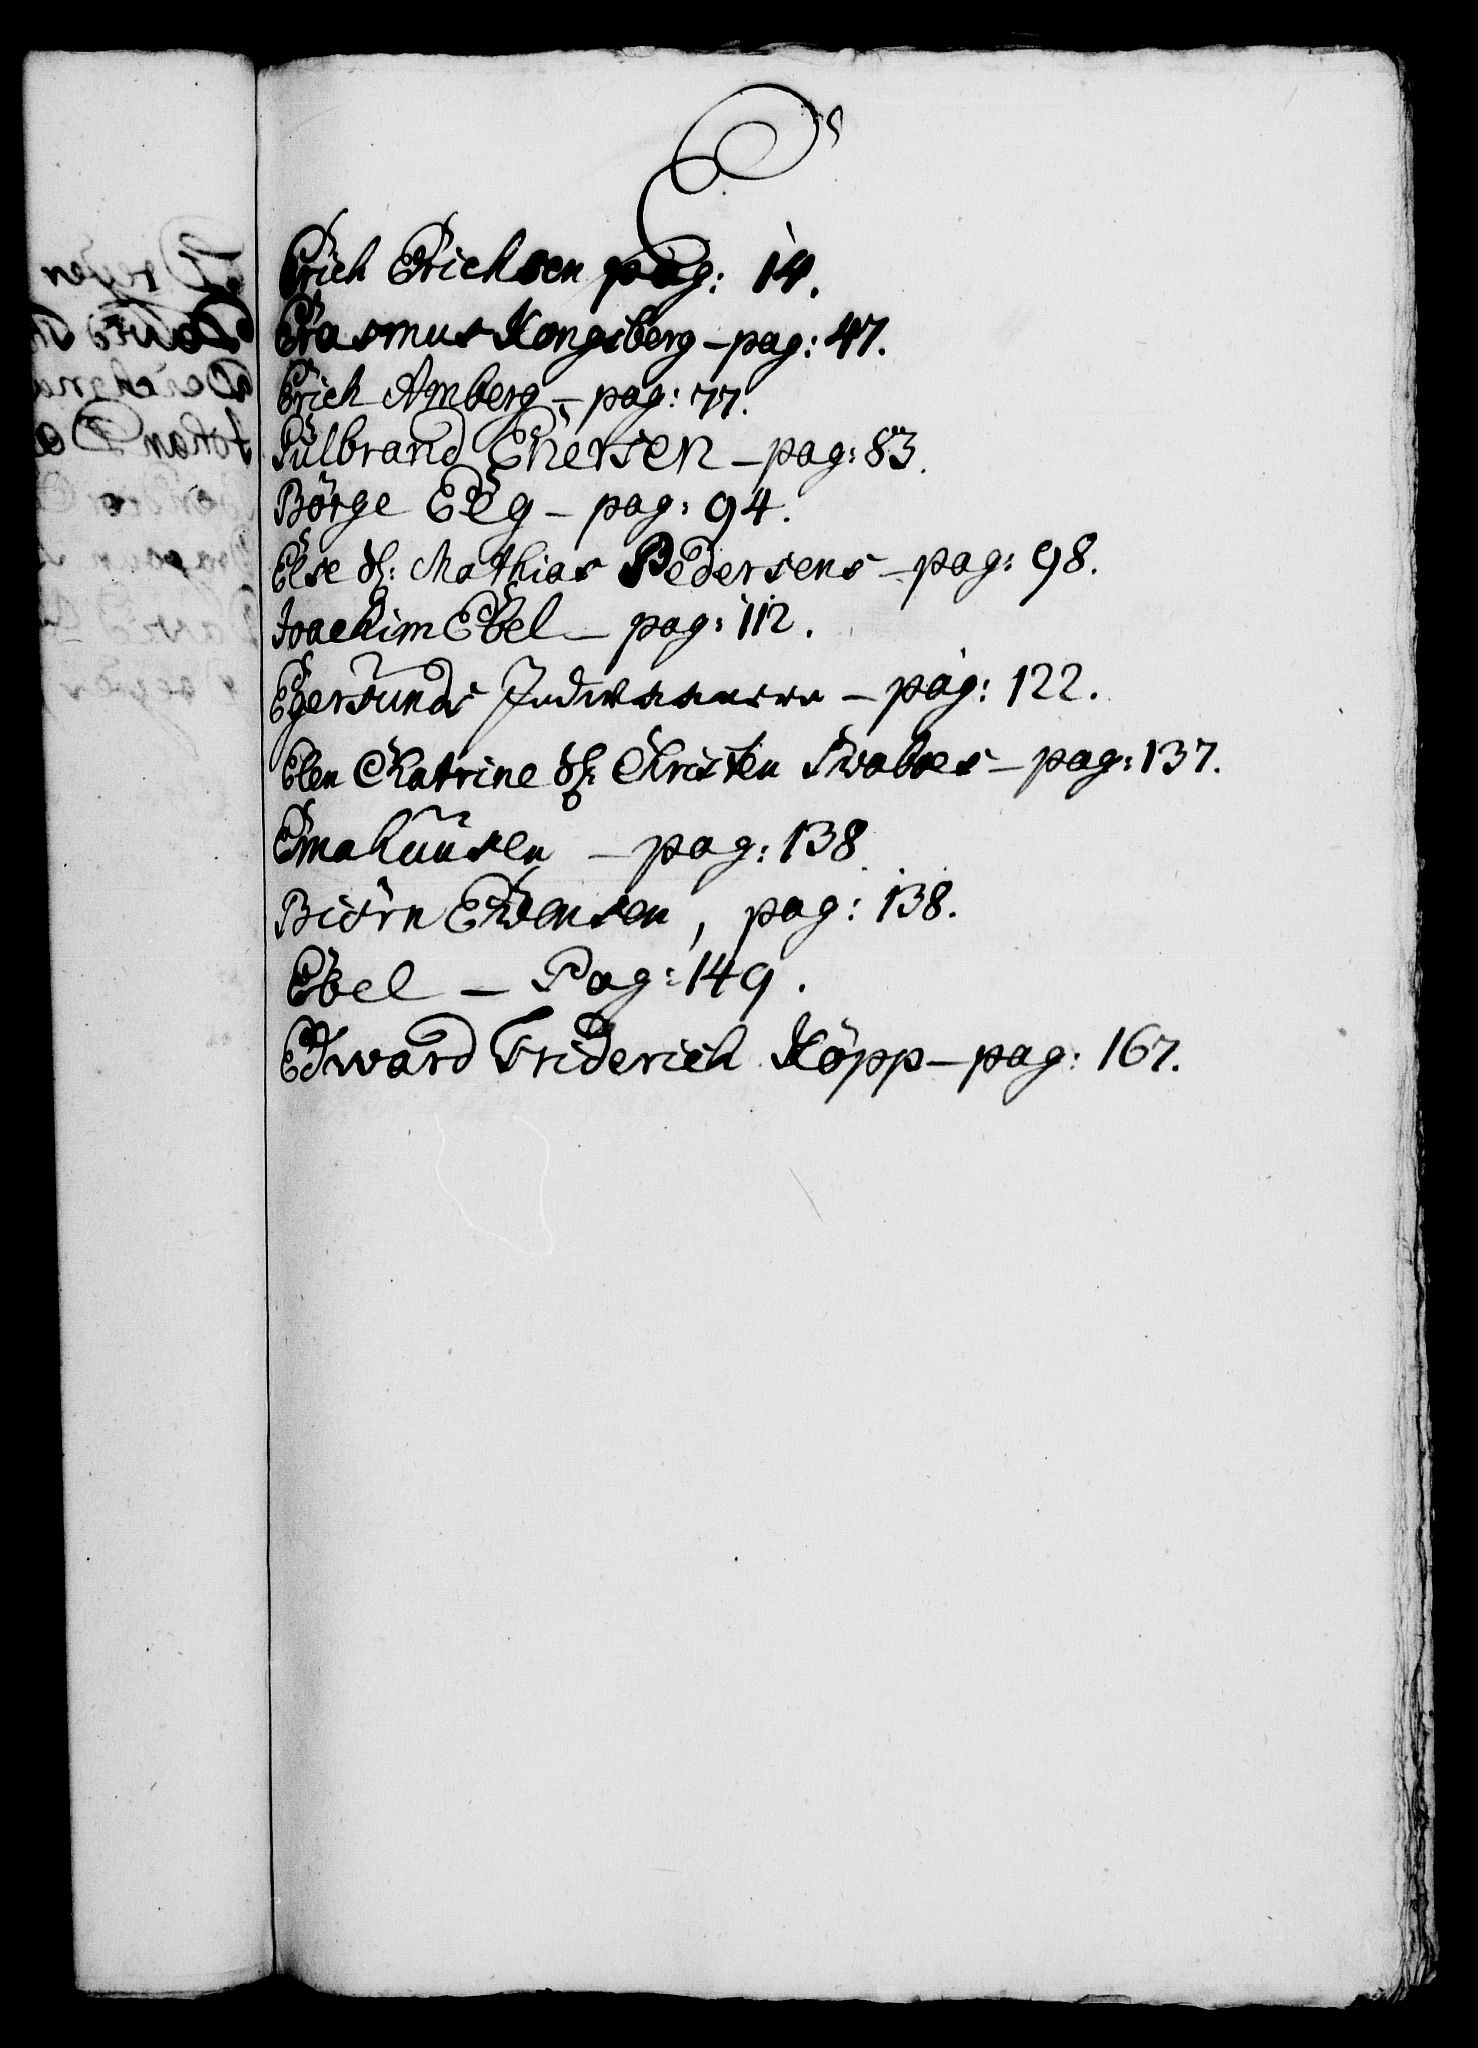 E
Erich Erichsen pag: 14.
Erasmus Kongsberg – pag: 47.
Erich Amberg – pag: 77.
Gulbrand Enersen – pag: 83.
Börge Eeg – pag: 94.
Else Mathias Pedersens – pag: 98.
Joachim Ebel – pag: 112.
Egersunds – pag: 122.
Elen Chatrine Christen – pag: 137.
Emahuusen – pag: 138
Biörn Evensen, pag: 138.
Ebel – Pag: 149.
Edward Friderich Köpp – pag: 167.